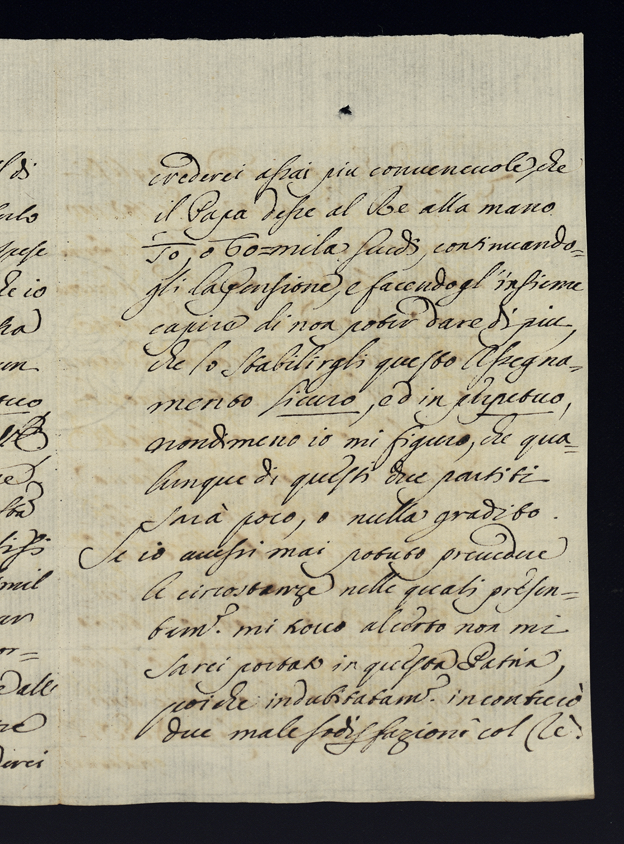 di
io
un
crederei assai piu conueneuole, che
il Papa desse al Re alla mano
50, o 60=mila scudi, continuando=
gli la Pensione, e facendogl'insieme
capire di non poter dare di piu,
che lo stabilirgli questo Assegna=
mento sicuro, ed in perpetuo,
nondimeno io mi figuro, che qua=
lunque di questi due partiti
sarà poco, o nulla gradito.
Se io auessi mai potuto preuedere
le circostanze nelle quali presen=
tem.e mi trouo al certo non mi
sarei portato in questa Patria,
poiche indubitatam.e incontrerò
due male sodisfazioni col Rè.